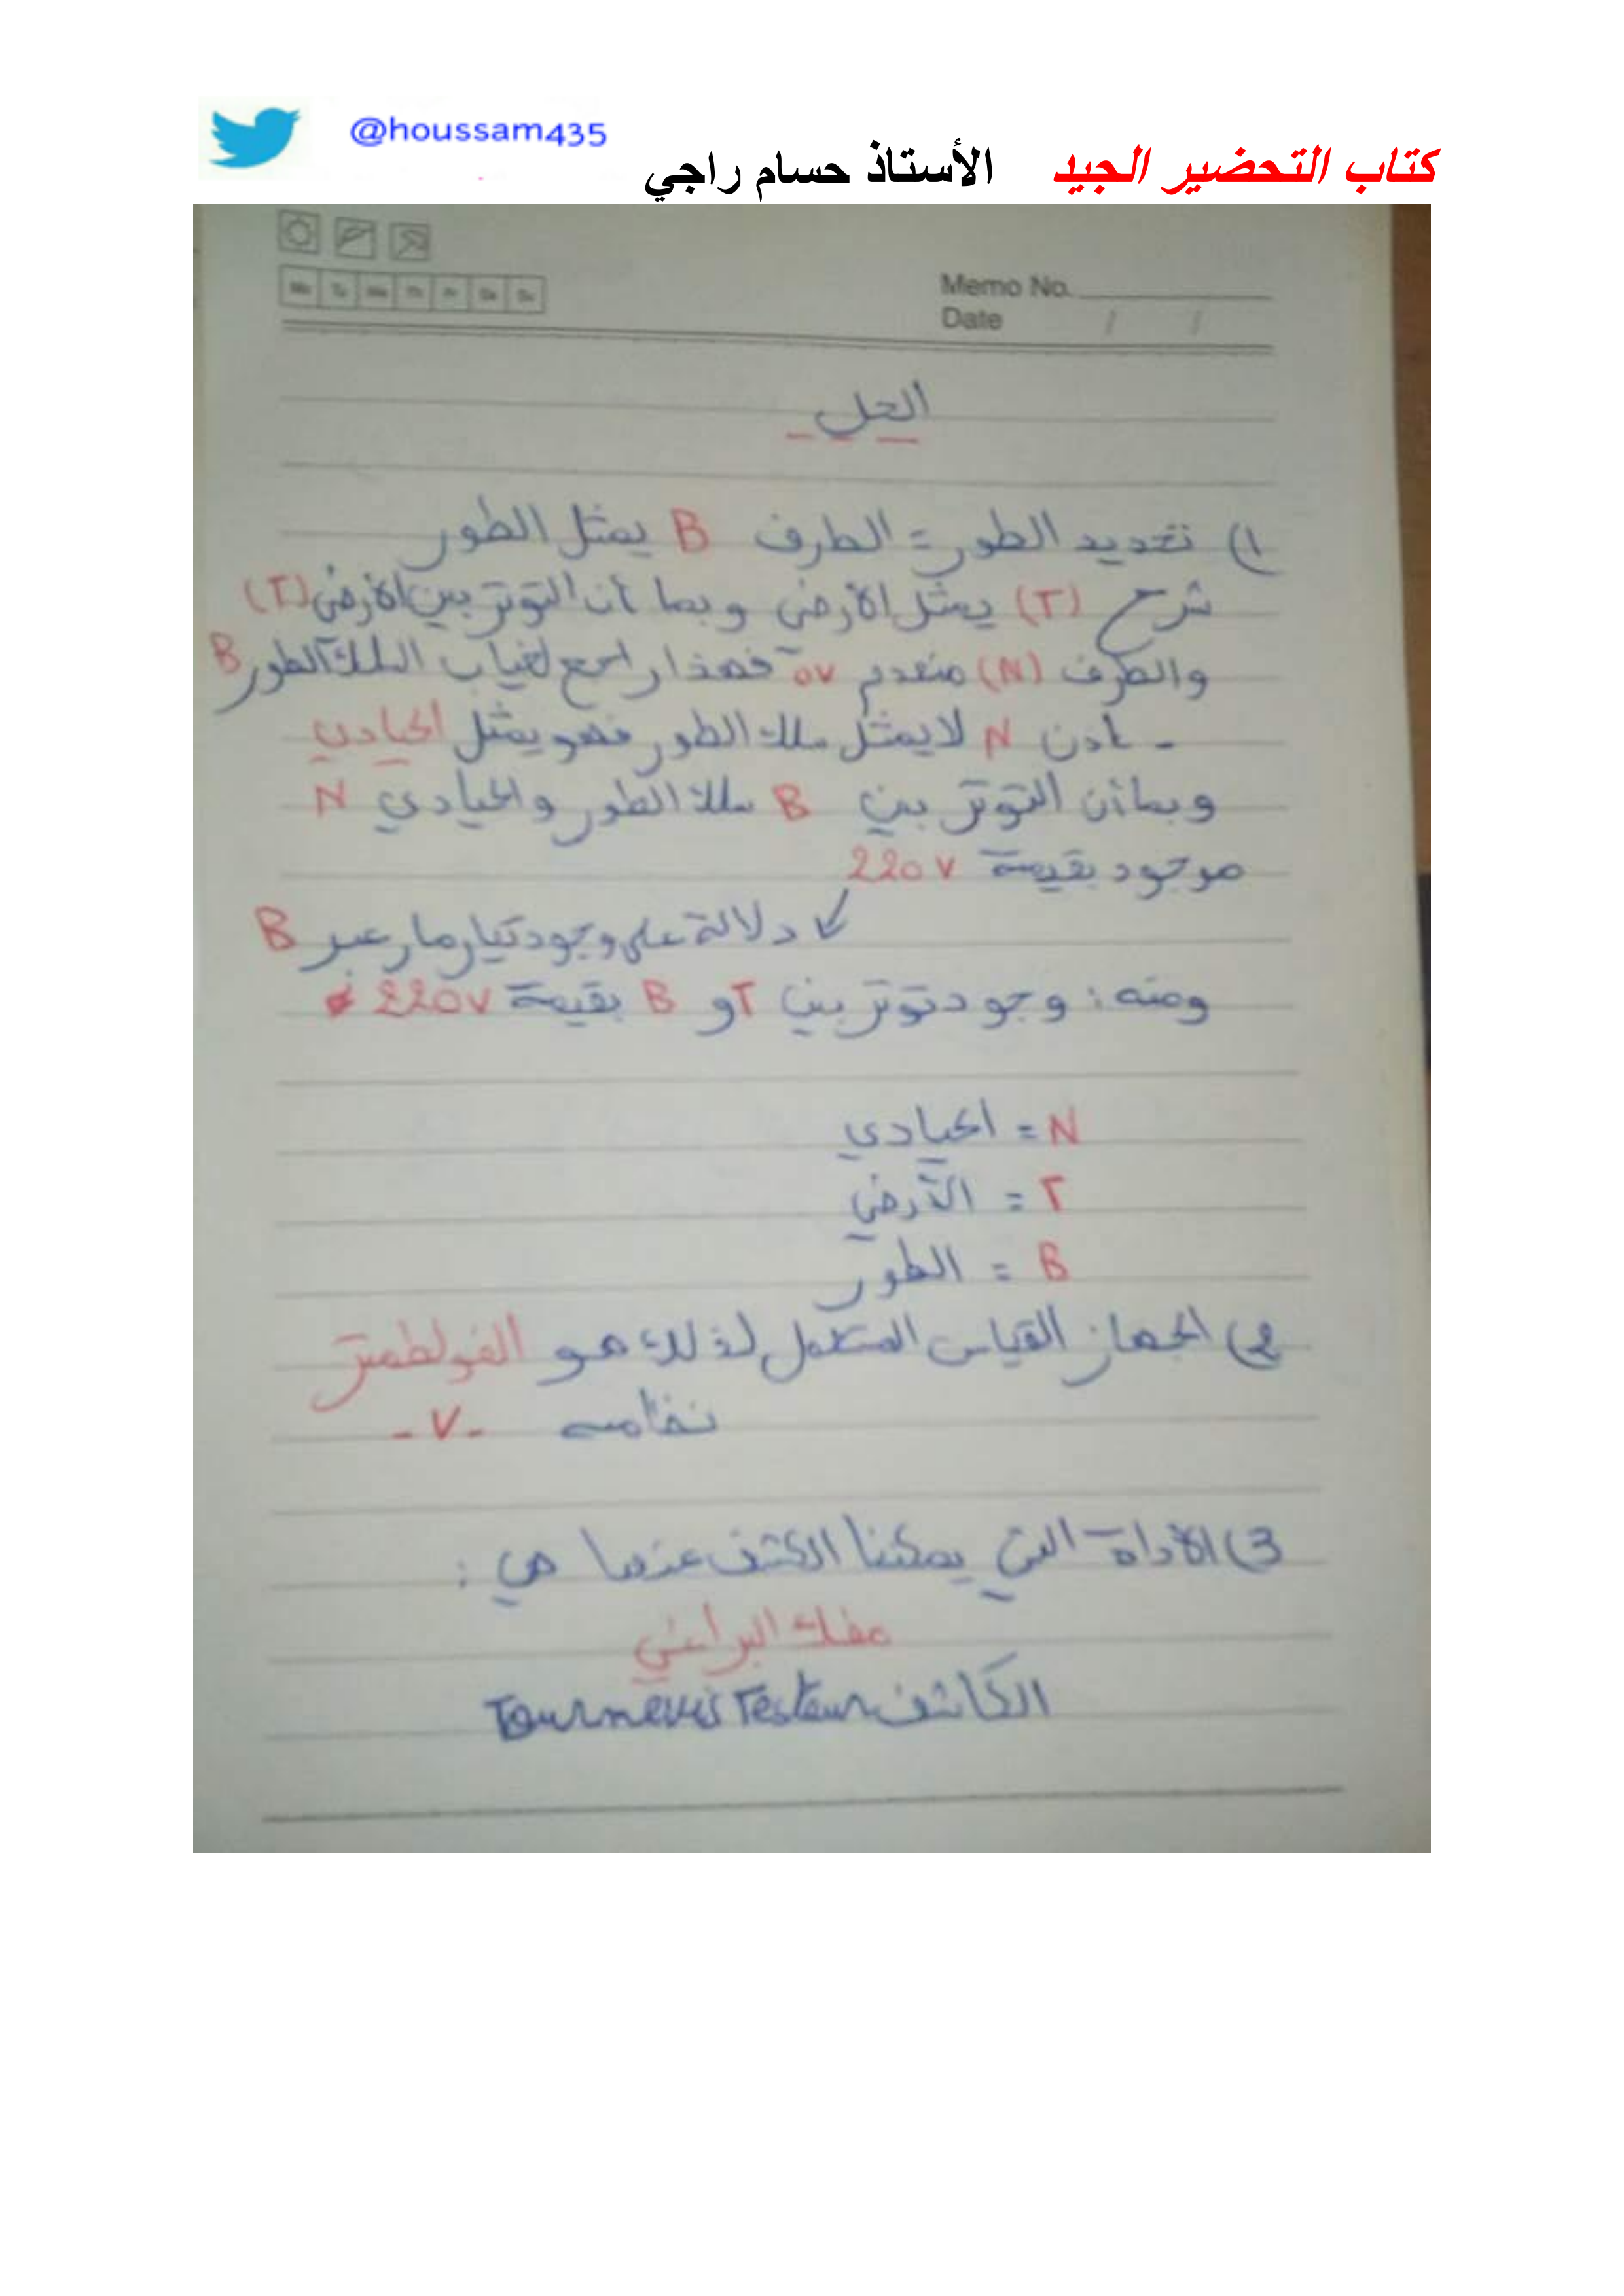 @houssam435
كتاب التحضير الجيد الأستاذ حسام راجي
Memo No.
Date / /
Mo Tu We Th Fr Sa Su
الحل
1) تحديد الطور = الطرف B يمثل الطور
شرح (T) يمثل الأرضي وبما أن التوتر بين الأرضي (T)
والطرف (N) منعدم 0V فهذا راجع لغياب السلك الطور B
- إذن N لا يمثل سلك الطور فهو يمثل الحيادي
وبما أن التوتر بين B سلك الطور والحيادي N
موجود بقيمة 220V
↙ دلالة على وجود تيار مار عبر B
ومنه : وجود توتر بين T و B بقيمة 220V
N = الحيادي
T = الأرضي
B = الطور
2) الجهاز القياس المستعمل لذلك هو الفولطمتر
نظامه - V -
3) الأداة التي يمكننا الكشف عنها هي :
مفك البراغي
الكاشف Tournevis Testeur